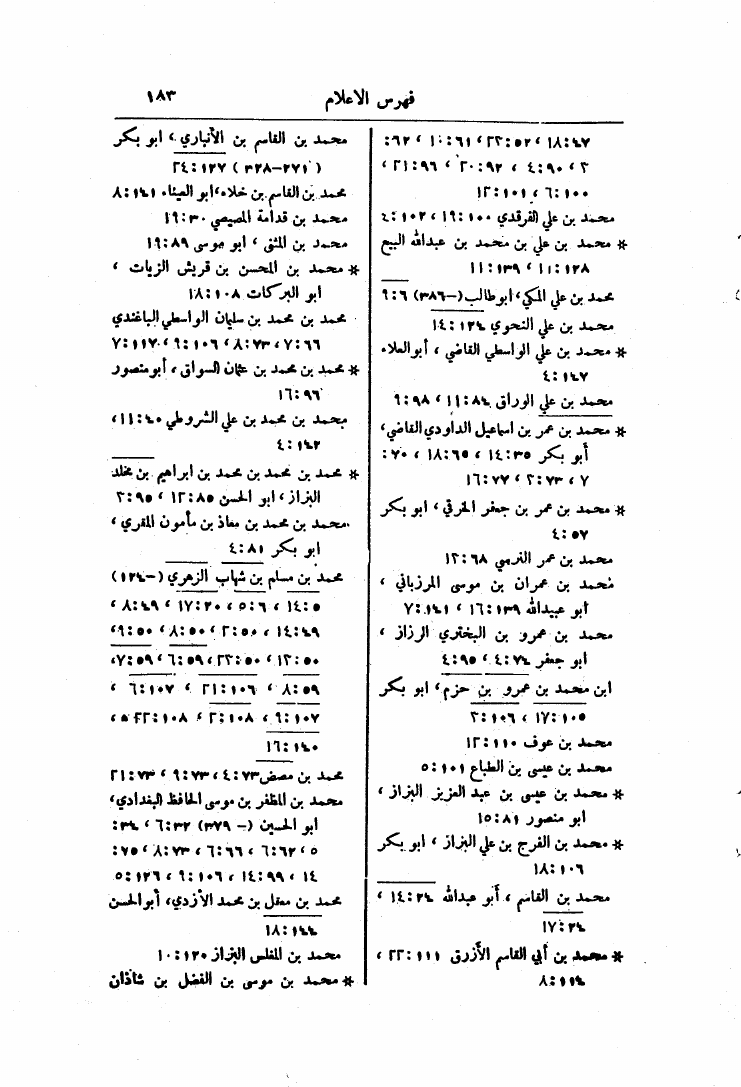 فهرس الاعلام ١٨٣
١٨:٤٧ ، ٢٢:٥٢ ، ١٠:٦١ ، ٦٢:
٣ ، ٤:٩٠ ، ٢٠:٩٢ ، ٢١:٩٦ ،
٦:١٠٠ ، ١٢:١٠١
محمد بن علي الفرقدي ١٩:١٠٠ ، ٤:١٠٢
* محمد بن علي بن محمد بن عبدالله البيع
١١:١٢٨ ، ١١:١٣٩
محمد بن علي المكي ، ابوطالب (–٣٨٦) ٩:٦
محمد بن علي النحوي ١٤:١٢٤
* محمد بن علي الواسطي القاضي ، أبوالعلاء
٤:١٤٧
محمد بن علي الوراق ١١:٨٤ ، ٩:٩٨
* محمد بن عمر بن اسماعيل الداودي القاضي ،
أبو بكر ١٤:٣٥ ، ١٨:٦٥ ، ٧٠:
٧ ، ٢:٧٣ ، ١٦:٧٧
* محمد بن عمر بن جعفر الخرقي ، ابو بكر
٤:٥٧
محمد بن عمر النرمي ١٢:٦٨
محمد بن عمران بن موسى المرزباني ،
ابو عبيدالله ١٦:١٣٩ ، ٧:١٤١
محمد بن عمرو بن البختري الرزاز ،
ابو جعفر ٤:٧٤ ، ٤:٩٥
ابن محمد بن عمرو بن حزم ، ابو بكر
١٧:١٠٥ ، ٢:١٠٦
محمد بن عوف ١٢:١١٠
محمد بن عيسى بن الطباع ٥:١٠١
* محمد بن عيسى بن عبد العزيز البزاز ،
ابو منصور ١٥:٨١
* محمد بن الفرج بن علي البزاز ، ابو بكر
١٨:١٠٦
محمد بن القاسم ، أبو عبدالله ١٤:٢٤ ،
١٧:٢٤
* محمد بن أبي القاسم الأزرق ٢٢:١١١ ،
٨:١١٤
محمد بن القاسم بن الأنباري ، ابو بكر
(٢٧١–٣٢٨) ٢٤:١٢٧
محمد بن القاسم بن خلاد ، ابو العيناء ٨:١٤١
محمد بن قدامة المصيصي ١٩:٣٠
محمد بن المثنى ، ابو موسى ١٩:٨٩
* محمد بن المحسن بن قريش الزيات ،
ابو البركات ١٨:١٠٨
محمد بن محمد بن سليمان الواسطي الباغندي
٧:٦٦ ، ٨:٧٣ ، ٩:١٠٦ ، ٧:١١٧
* محمد بن محمد بن عثمان السواق ، أبو منصور
١٦:٩٦
محمد بن محمد بن علي الشروطي ١١:٤٠ ،
٤:١٤٢
* محمد بن محمد بن محمد بن ابراهيم بن مخلد
البزاز ، ابو الحسن ١٢:٨٥ ، ٢:٩٥
محمد بن محمد بن معاذ بن مأمون المقري ،
ابو بكر ٤:٨١
محمد بن مسلم بن شهاب الزهري (–١٢٤)
١٤:٥ ، ٥:٦ ، ١٧:٢٠ ، ٨:٤٩ ،
١٤:٤٩ ، ٢:٥٠ ، ٨:٥٠ ، ٩:٥٠ ،
١٢:٥٠ ، ٢٢:٥٠ ، ٦:٥٩ ، ٧:٥٩ ،
٨:٥٩ ، ٢١:١٠٦ ، ٦:١٠٧ ،
٩:١٠٧ ، ٢:١٠٨ ، ٢٢:١٠٨ ،
١٦:١٤٠
محمد بن مصفى ٤:٧٣ ، ٩:٧٣ ، ٢١:٧٣
محمد بن المظفر بن موسى الحافظ البغدادي ،
ابو الحسين (– ٣٧٩) ٦:٣٢ ، ٣٤:
٥ ، ٦:٦٢ ، ٦:٦٦ ، ٨:٧٣ ، ٧٥:
١٤ ، ١٤:٩٩ ، ٩:١٠٦ ، ٥:١٢٦
محمد بن معقل بن محمد الأزدي ، أبو الحسن
١٨:١٤٤
محمد بن المفلس البزاز ١٠:١٢٠
* محمد بن موسى بن الفضل بن شاذان